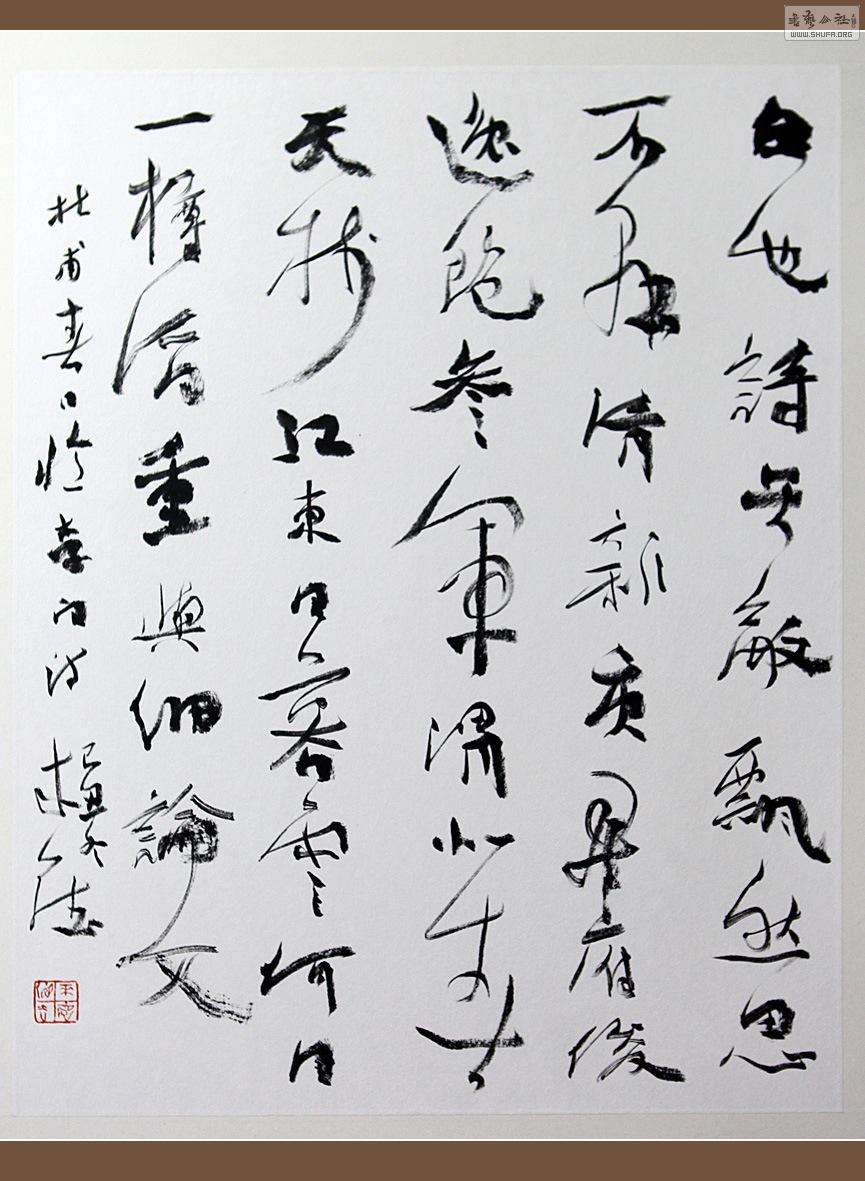 白也詩无敵飄然思
不群清新庾開府俊
逸鮑參軍渭北春
天樹江東日暮雲何日
一樽酒重與細論文
杜甫春日憶李白詩
己丑冬
書艺公社
WWW.SHUFA.ORG